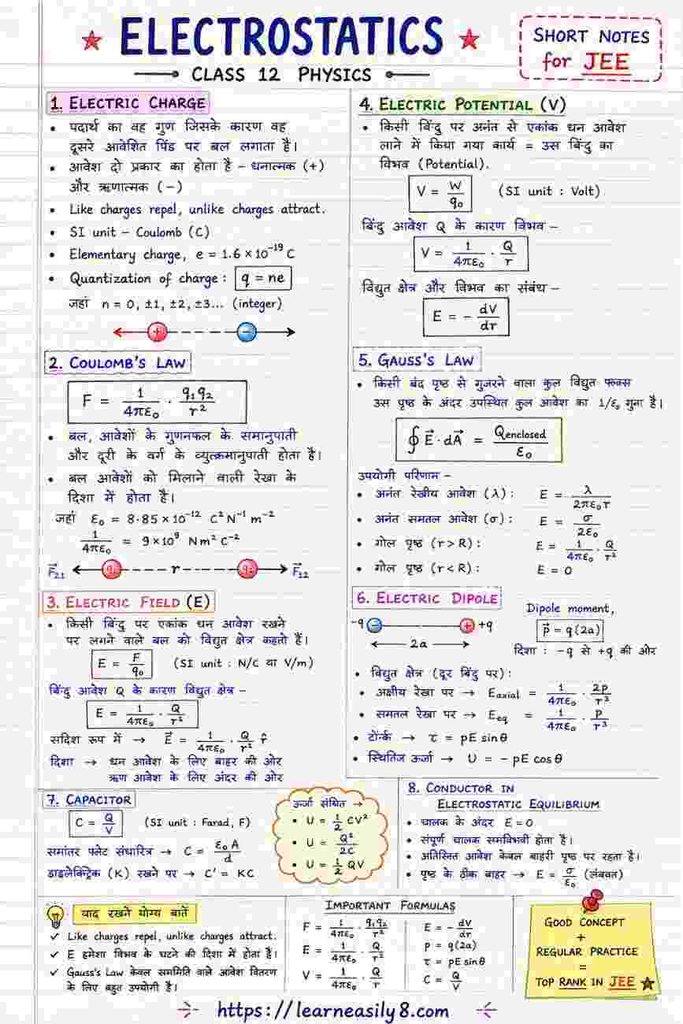 ELECTROSTATICS
CLASS 12 PHYSICS
SHORT NOTES
for JEE
1. ELECTRIC CHARGE
• पदार्थ का वह गुण जिसके कारण वह
दूसरे आवेशित पिंड पर बल लगाता है।
• आवेश दो प्रकार का होता है – धनात्मक (+)
और ऋणात्मक (−)
• Like charges repel, unlike charges attract.
• SI unit – Coulomb (C)
• Elementary charge, e = 1.6 × 10⁻¹⁹ C
• Quantization of charge : q = ne
जहां n = 0, ±1, ±2, ±3... (integer)
+ −
2. COULOMB'S LAW
F = 1/4πε₀ · q₁q₂/r²
• बल, आवेशों के गुणनफल के समानुपाती
और दूरी के वर्ग के व्युत्क्रमानुपाती होता है।
• बल आवेशों को मिलाने वाली रेखा के
दिशा में होता है।
जहां ε₀ = 8.85 × 10⁻¹² C² N⁻¹ m⁻²
1/4πε₀ = 9 × 10⁹ Nm² C⁻²
F⃗₂₁ r F⃗₁₂
3. ELECTRIC FIELD (E)
• किसी बिंदु पर एकांक धन आवेश रखने
पर लगने वाले बल को विद्युत क्षेत्र कहतो हैं।
E = F/q₀ (SI unit : N/C या V/m)
बिंदु आवेश Q के कारण विद्युत क्षेत्र –
E = 1/4πε₀ · Q/r²
सदिश रूप में → E⃗ = 1/4πε₀ · Q/r² r̂
दिशा → धन आवेश के लिए बाहर की ओर
ऋण आवेश के लिए अंदर की ओर
4. ELECTRIC POTENTIAL (V)
• किसी बिंदु पर अनंत से एकांक धन आवेश
लाने में किया गया कार्य = उस बिंदु का
विभव (Potential).
V = W/q₀ (SI unit : Volt)
बिंदु आवेश Q के कारण विभव –
V = 1/4πε₀ · Q/r
विद्युत क्षेत्र और विभव का संबंध –
E = − dV/dr
5. GAUSS'S LAW
• किसी बंद पृष्ठ से गुजरने वाला कुल विद्युत फ्लक्स
उस पृष्ठ के अंदर उपस्थित कुल आवेश का 1/ε₀ गुना है।
∮ E⃗ · dA⃗ = Qenclosed/ε₀
उपयोगी परिणाम –
• अनंत रेखीय आवेश (λ) : E = λ/2πε₀r
• अनंत समतल आवेश (σ) : E = σ/2ε₀
• गोल पृष्ठ (r > R) : E = 1/4πε₀ · Q/r²
• गोल पृष्ठ (r < R) : E = 0
6. ELECTRIC DIPOLE
-q − + +q
2a
Dipole moment,
p⃗ = q(2a)
दिशा : −q से +q की ओर
• विद्युत क्षेत्र (दूर बिंदु पर) :
• अक्षीय रेखा पर → Eaxial = 1/4πε₀ · 2p/r³
• समतल रेखा पर → Eeq = 1/4πε₀ · p/r³
• टॉर्क → τ = pE sinθ
• स्थितिज ऊर्जा → U = − pE cosθ
7. CAPACITOR
C = Q/V (SI unit : Farad, F)
समांतर प्लेट संधारित्र → C = ε₀A/d
डाइलेक्ट्रिक (K) रखने पर → C' = KC
ऊर्जा संचित →
• U = 1/2 CV²
• U = Q²/2C
• U = 1/2 QV
8. CONDUCTOR IN
ELECTROSTATIC EQUILIBRIUM
• चालक के अंदर E = 0
• संपूर्ण चालक समविभवी होता है।
• अतिरिक्त आवेश केवल बाहरी पृष्ठ पर रहता है।
• पृष्ठ के ठीक बाहर → E = σ/ε₀ (लंबवत)
याद रखने योग्य बातें
✓ Like charges repel, unlike charges attract.
✓ E हमेशा विभव के घटने की दिशा में होता है।
✓ Gauss's Law केवल सममिति वाले आवेश वितरण
के लिए बहुत उपयोगी है।
IMPORTANT FORMULAS
F = 1/4πε₀ · q₁q₂/r² E = − dV/dr
E = 1/4πε₀ · Q/r² p = q(2a)
τ = pE sinθ
V = 1/4πε₀ · Q/r C = Q/V
GOOD CONCEPT
+
REGULAR PRACTICE
=
TOP RANK IN JEE
https://learneasily8.com